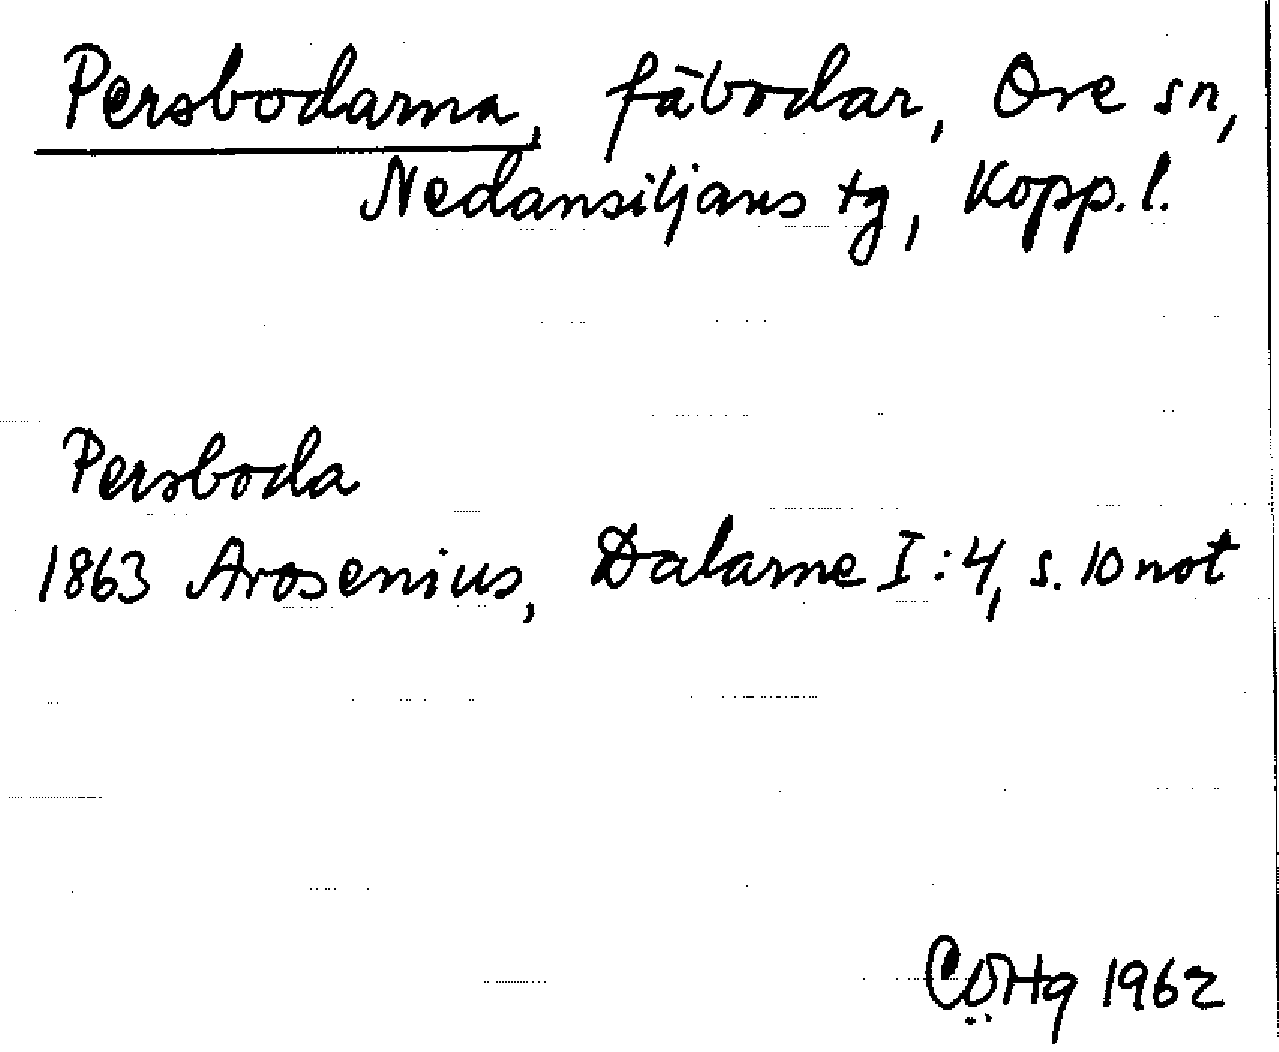 Persbodarna, fäbodar, Ore sn,
Nedansiljans tg, Kopp. l.
Persboda
1863 Arosenius, Dalarne I:4, s. 10 not
1962